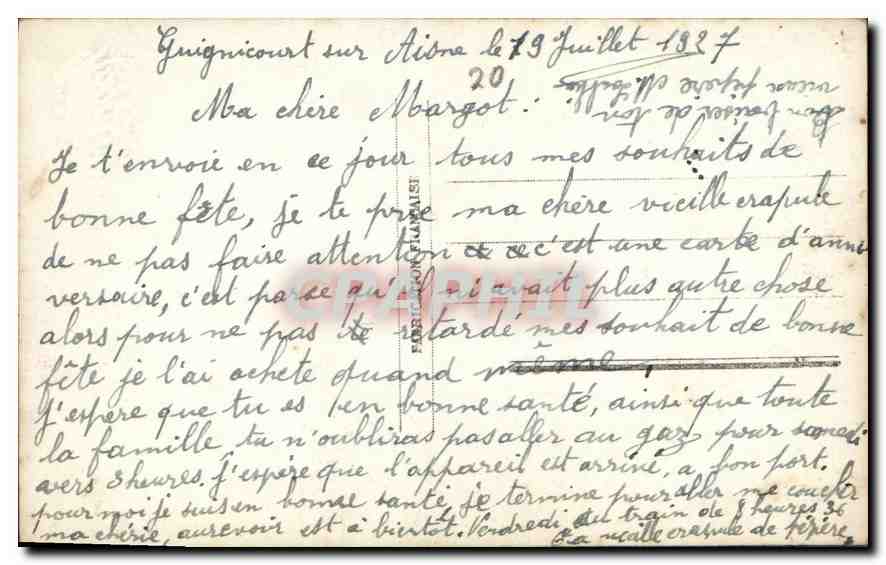 Guignicourt sur Aisne le 19 Juillet 1927
20
Ma chère Margot :
Je t'envoie en ce jour tous mes souhaits de
bonne fête, je te prie ma chère vieille crapule
de ne pas faire attention ce c'est une carte d'anni
versaire, c'est parse qu'il ni avait plus autre chose
alors pour ne pas te retardé mes souhait de bonne
fête je l'ai achete quand même,
j'espere que tu es en bonne santé, ainsi que toute
la famille tu n'oubliras pas aller au gaz pour samedi
avers 3 heures. j'espére que l'appareil est arrivé, a bon port.
pour moi je suis en bonne santé, je termine pour aller me coucher
ma chérie, aurevoir est à bientôt. Vendredi au train de 8 heures 36
Ta vieille crapule de pépère.
Bon baiser de ton
vieux pépère
FABRICATION FRANÇAISE
CPAPHIL